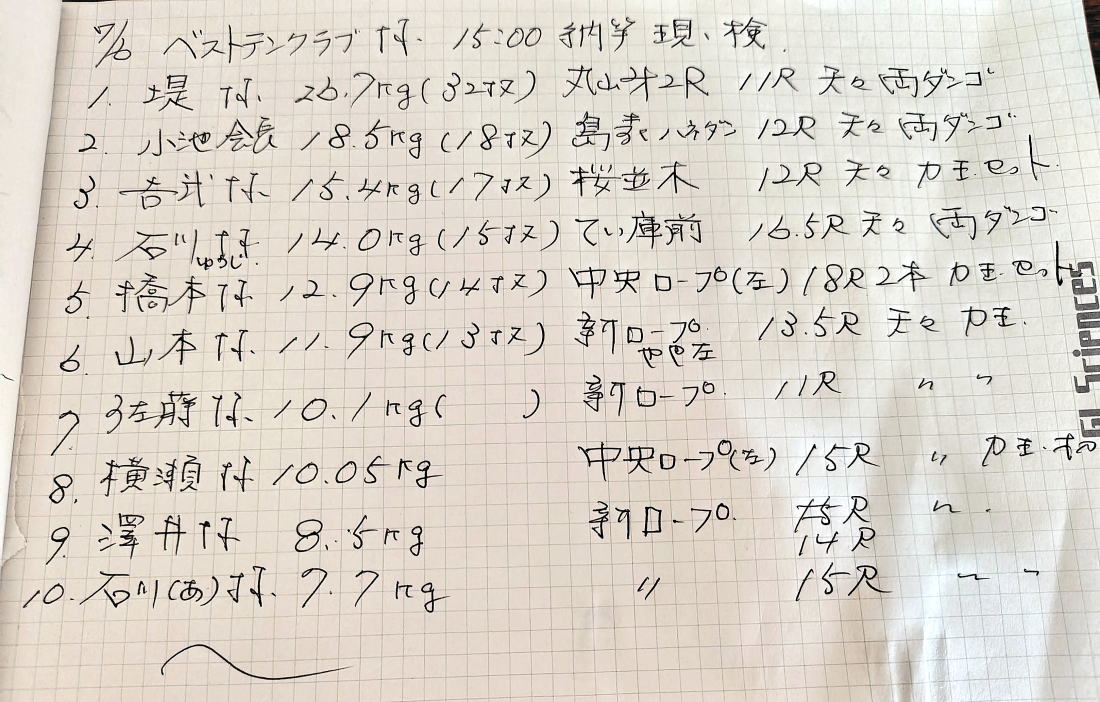 7/6 ベストテンクラブ 様. 15:00 納竿 現、検.
1. 堤 様. 26.7kg(32枚) 丸山才2R 11R 天々 両ダンゴ
2. 小池会長 18.5kg(18枚) 島表 ハネダシ 12R 天々 両ダンゴ
3. 吉武 様. 15.4kg(17枚) 桜並木 12R 天々 カ玉セット.
4. 石川 様 14.0kg(15枚) てい庫前 16.5R 天々 両ダンゴ
ゆうじ.
5. 橋本 様 12.9kg(14枚) 中央ロープ(左) 18R 2本 カ玉.セット
6. 山本 様. 11.9kg(13枚) 新ロープ. 13.5R 天々 カ玉.
やや左
7. 佐藤 様. 10.1kg( ) 新ロープ. 11R 〃 〃
8. 横瀬 様 10.05kg 中央ロープ(左) 15R 〃 カ玉.
9. 澤井 様 8.5kg 新ロープ. 15R 〃 .
14R
10. 石川(あ) 様. 7.7kg 〃 15R 〃 〃
GL Sciences